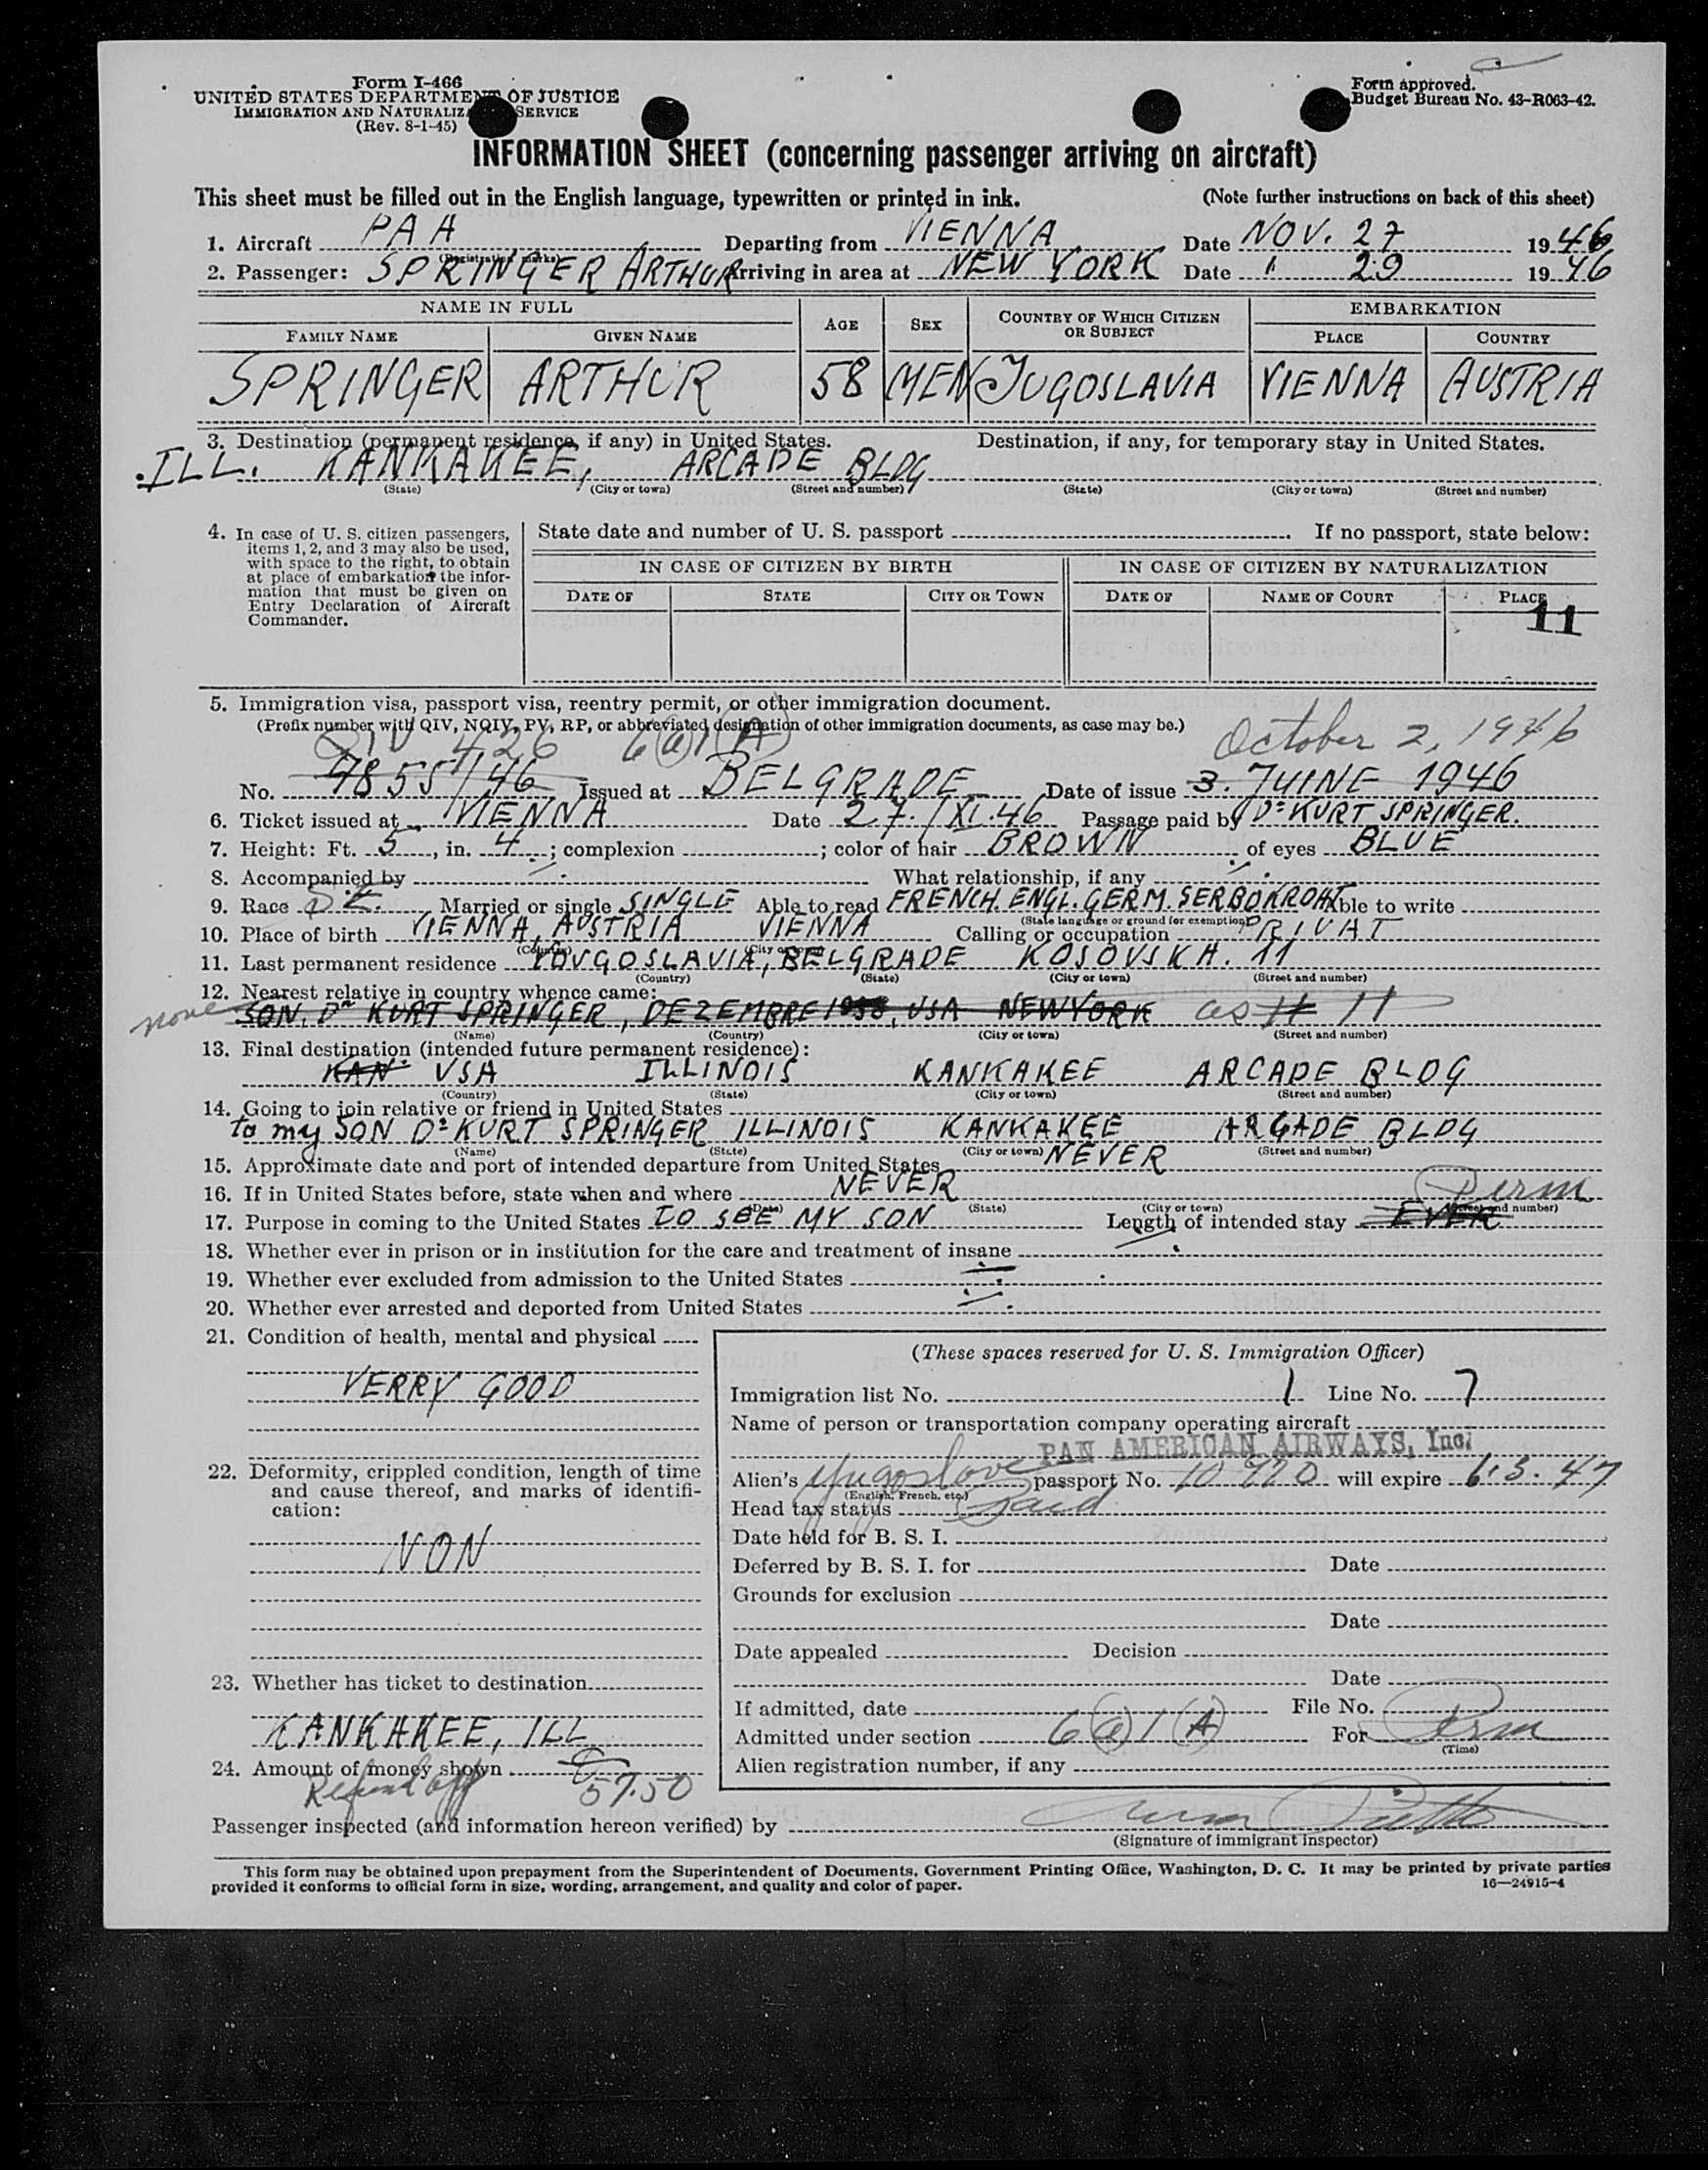 Form I-466
UNITED STATES DEPARTMENT OF JUSTICE
IMMIGRATION AND NATURALIZ SERVICE
(Rev. 8-1-45)
Form approved.
Budget Bureau No. 43-R063-42.
INFORMATION SHEET (concerning passenger arriving on aircraft)
This sheet must be filled out in the English language, typewritten or printed in ink. (Note further instructions on back of this sheet)
1. Aircraft PAA Departing from VIENNA Date NOV. 27 1946
(Registration marks)
2. Passenger: SPRINGER ARTHUR Arriving in area at NEW YORK Date " 29 1946
NAME IN FULL AGE SEX COUNTRY OF WHICH CITIZEN OR SUBJECT EMBARKATION
FAMILY NAME GIVEN NAME PLACE COUNTRY
SPRINGER ARTHUR 58 MEN JUGOSLAVIA VIENNA AUSTRIA
3. Destination (permanent residence, if any) in United States. Destination, if any, for temporary stay in United States.
ILL. KANKAKEE, ARCADE BLDG
(State) (City or town) (Street and number) (State) (City or town) (Street and number)
4. In case of U. S. citizen passengers, items 1, 2, and 3 may also be used, with space to the right, to obtain at place of embarkation the information that must be given on Entry Declaration of Aircraft Commander.
State date and number of U. S. passport If no passport, state below:
IN CASE OF CITIZEN BY BIRTH IN CASE OF CITIZEN BY NATURALIZATION
DATE OF STATE CITY OR TOWN DATE OF NAME OF COURT PLACE
11
5. Immigration visa, passport visa, reentry permit, or other immigration document.
(Prefix number with QIV, NQIV, PV, RP, or abbreviated designation of other immigration documents, as case may be.)
QIV 426 6(a)1(A) October 2, 1946
No. 9855/46 Issued at BELGRADE Date of issue 3. JUINE 1946
6. Ticket issued at VIENNA Date 27. XI. 46 Passage paid by Dr KURT SPRINGER.
7. Height: Ft. 5, in. 4; complexion ; color of hair BROWN of eyes BLUE
8. Accompanied by What relationship, if any
9. Race Married or single SINGLE Able to read FRENCH. ENGL. GERM. SERBOKROAT Able to write
(State language or ground for exemption)
10. Place of birth VIENNA, AUSTRIA VIENNA Calling or occupation PRIVAT
(Country) (City or town)
11. Last permanent residence YOUGOSLAVIA, BELGRADE KOSOVSKA. 11
(Country) (State) (City or town) (Street and number)
12. Nearest relative in country whence came:
none SON, Dr KURT SPRINGER, DEZEMBRE, USA NEWYORK as # 11
(Name) (Country) (City or town) (Street and number)
13. Final destination (intended future permanent residence):
KAN USA ILLINOIS KANKAKEE ARCADE BLDG
(Country) (State) (City or town) (Street and number)
14. Going to join relative or friend in United States
to my SON Dr KURT SPRINGER ILLINOIS KANKAKEE ARCADE BLDG
(Name) (State) (City or town) (Street and number)
15. Approximate date and port of intended departure from United States NEVER
16. If in United States before, state when and where NEVER
(Date) (State) (City or town) (Street and number)
17. Purpose in coming to the United States TO SEE MY SON Length of intended stay EVER Perm
18. Whether ever in prison or in institution for the care and treatment of insane
19. Whether ever excluded from admission to the United States
20. Whether ever arrested and deported from United States
21. Condition of health, mental and physical
VERRY GOOD
22. Deformity, crippled condition, length of time and cause thereof, and marks of identification:
NON
23. Whether has ticket to destination
KANKAKEE, ILL
24. Amount of money shown 57.50
(These spaces reserved for U. S. Immigration Officer)
Immigration list No. 1 Line No. 7
Name of person or transportation company operating aircraft
PAN AMERICAN AIRWAYS, Inc.
Alien's Yugoslave passport No. 10920 will expire 6.3.47
(English, French, etc.)
Head tax status Paid
Date held for B. S. I.
Deferred by B. S. I. for Date
Grounds for exclusion
Date
Date appealed Decision
Date
If admitted, date File No.
Admitted under section 6(a)1(A) For Perm
(Time)
Alien registration number, if any
Passenger inspected (and information hereon verified) by
(Signature of immigrant inspector)
This form may be obtained upon prepayment from the Superintendent of Documents, Government Printing Office, Washington, D. C. It may be printed by private parties
provided it conforms to official form in size, wording, arrangement, and quality and color of paper. 16—24915-4